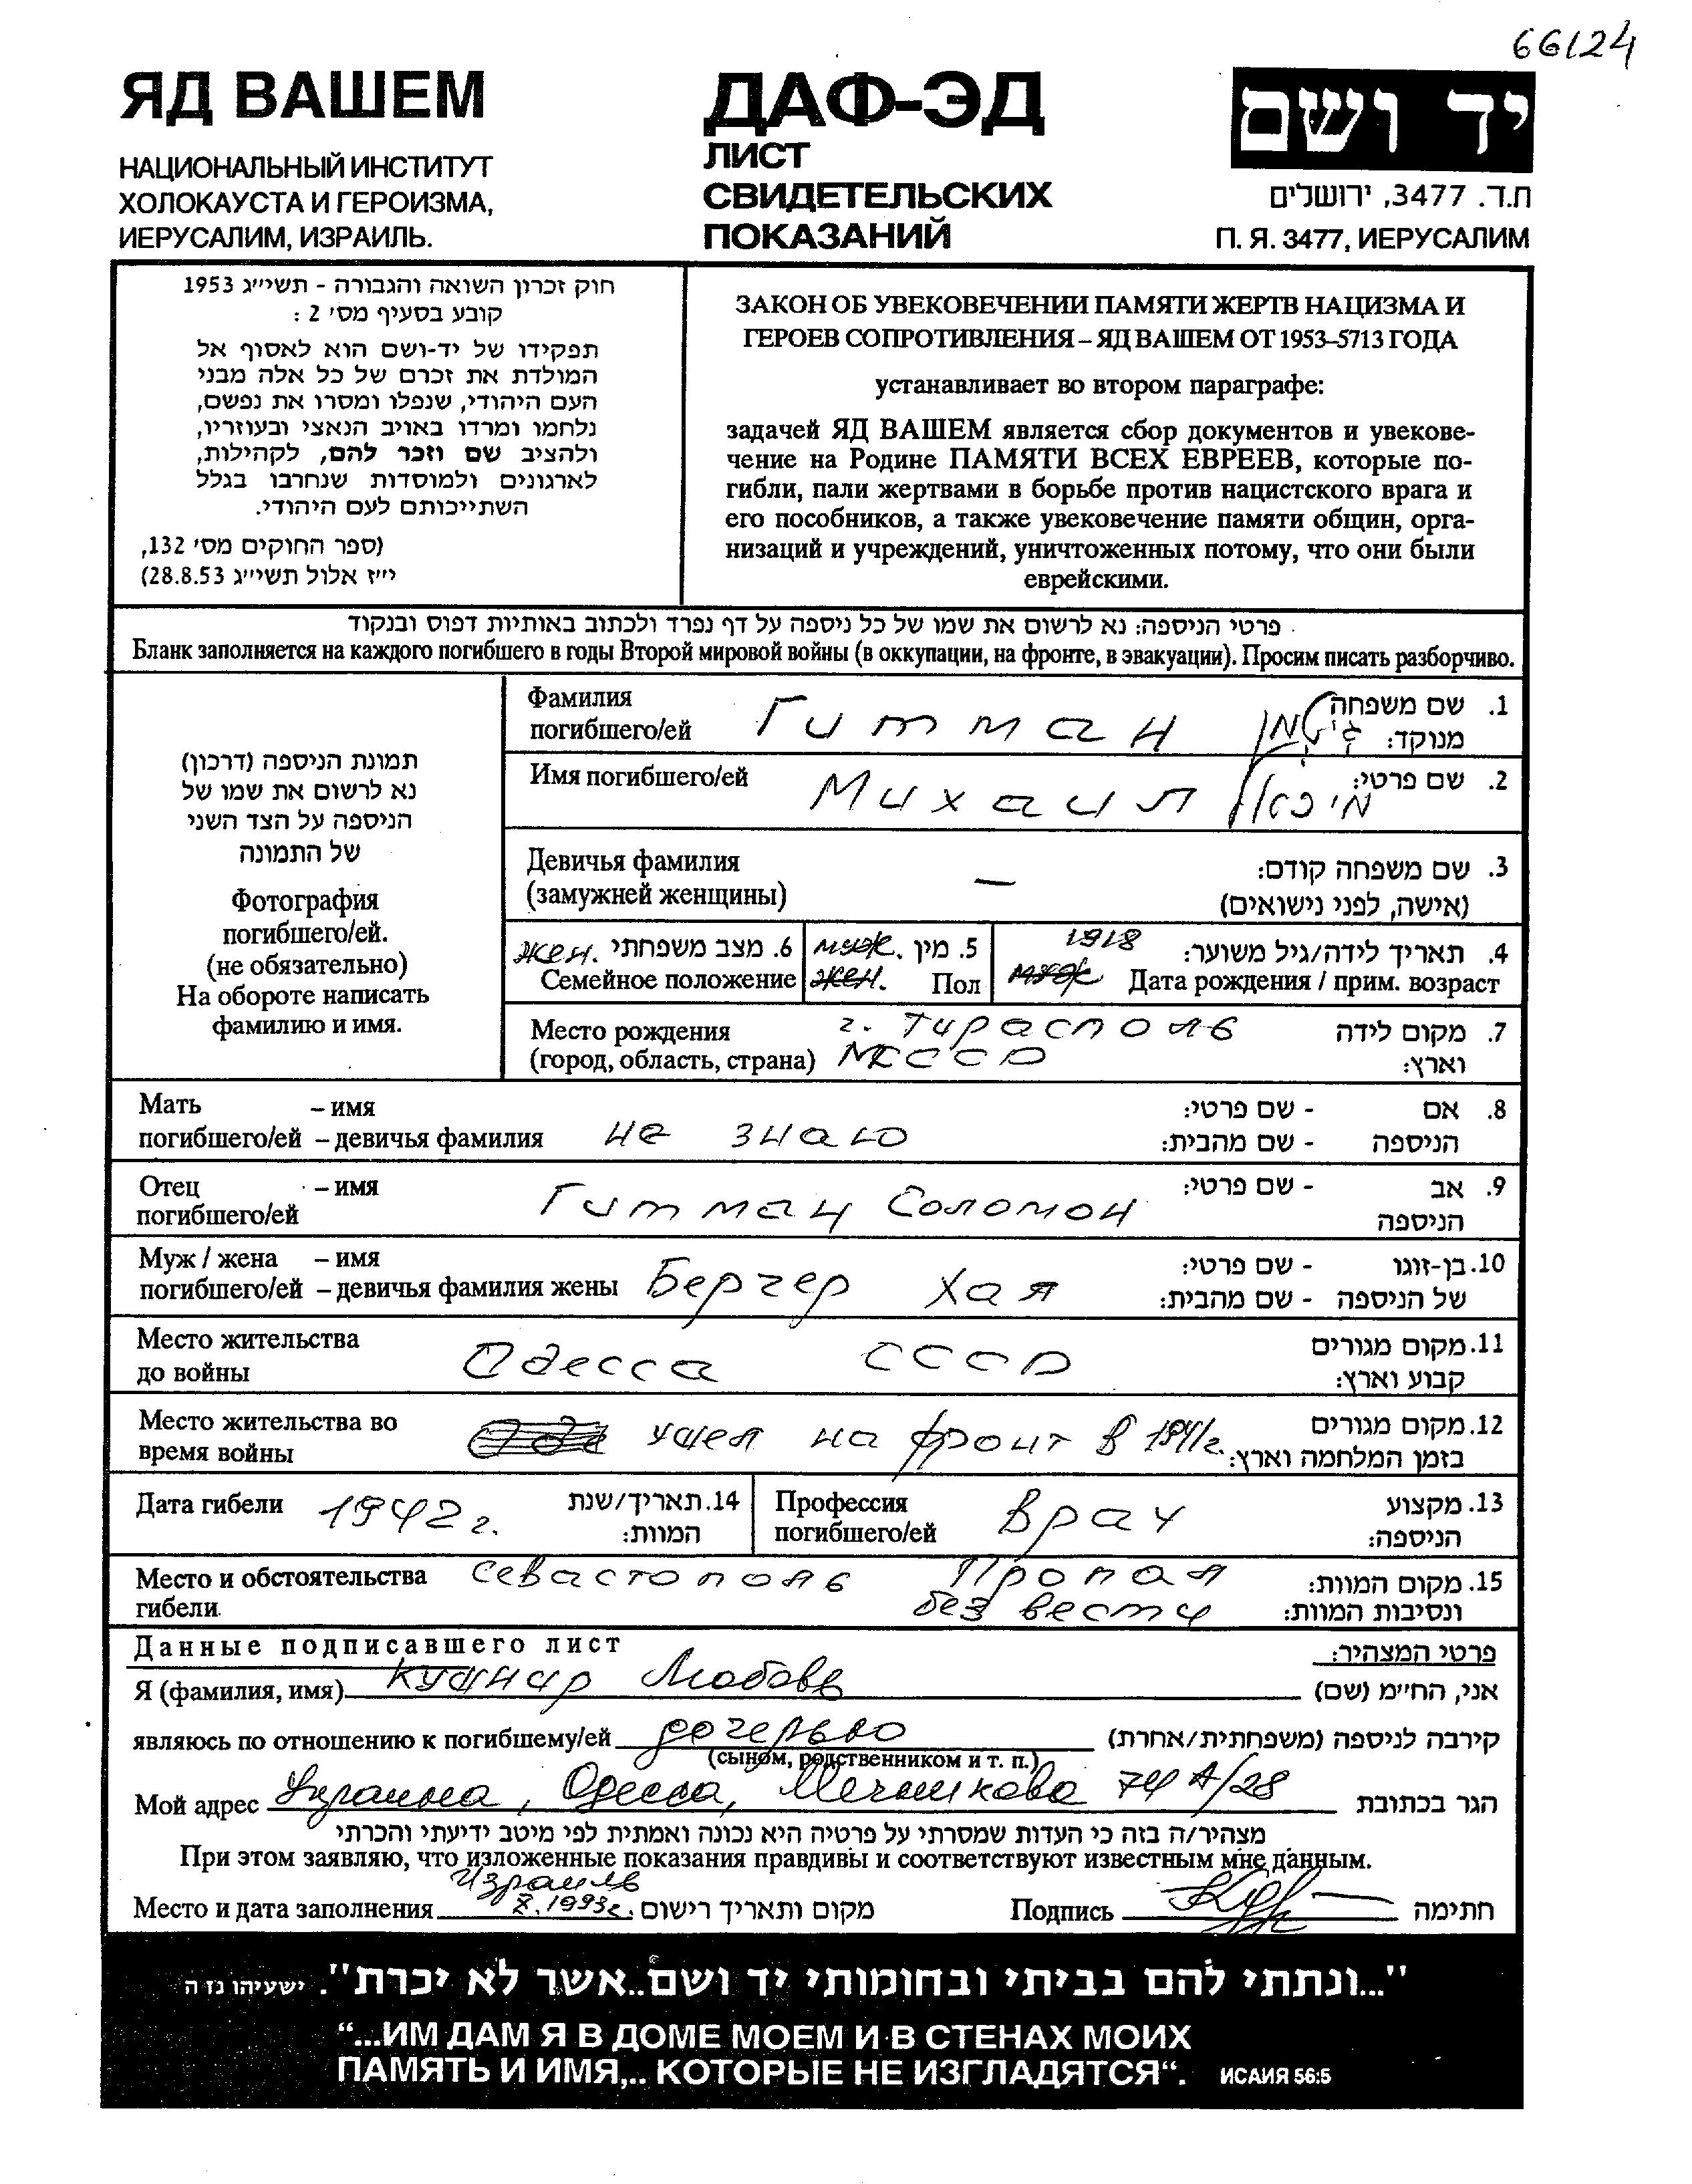 66124
ЯД ВАШЕМ
НАЦИОНАЛЬНЫЙ ИНСТИТУТ
ХОЛОКАУСТА И ГЕРОИЗМА,
ИЕРУСАЛИМ, ИЗРАИЛЬ.
ДАФ-ЭД
ЛИСТ
СВИДЕТЕЛЬСКИХ
ПОКАЗАНИЙ
יד ושם
ת.ד. 3477, ירושלים
П. Я. 3477, ИЕРУСАЛИМ
חוק זכרון השואה והגבורה - תשי״ג 1953
קובע בסעיף מס׳ 2 :
תפקידו של יד-ושם הוא לאסוף אל
המולדת את זכרם של כל אלה מבני
העם היהודי, שנפלו ומסרו את נפשם,
נלחמו ומרדו באויב הנאצי ובעוזריו,
ולהציב שם וזכר להם, לקהילות,
לארגונים ולמוסדות שנחרבו בגלל
השתייכותם לעם היהודי.
(ספר החוקים מס׳ 132,
י״ז אלול תשי״ג 28.8.53)
ЗАКОН ОБ УВЕКОВЕЧЕНИИ ПАМЯТИ ЖЕРТВ НАЦИЗМА И
ГЕРОЕВ СОПРОТИВЛЕНИЯ – ЯД ВАШЕМ ОТ 1953–5713 ГОДА
устанавливает во втором параграфе:
задачей ЯД ВАШЕМ является сбор документов и увекове-
чение на Родине ПАМЯТИ ВСЕХ ЕВРЕЕВ, которые по-
гибли, пали жертвами в борьбе против нацистского врага и
его пособников, а также увековечение памяти общин, орга-
низаций и учреждений, уничтоженных потому, что они были
еврейскими.
פרטי הניספה: נא לרשום את שמו של כל ניספה על דף נפרד ולכתוב באותיות דפוס ובנקוד
Бланк заполняется на каждого погибшего в годы Второй мировой войны (в оккупации, на фронте, в эвакуации). Просим писать разборчиво.
תמונת הניספה (דרכון)
נא לרשום את שמו של
הניספה על הצד השני
של התמונה
Фотография
погибшего/ей.
(не обязательно)
На обороте написать
фамилию и имя.
Фамилия
погибшего/ей Гитман גיטמן
1. שם משפחה
מנוקד:
Имя погибшего/ей Михаил מיכאל
2. שם פרטי:
Девичья фамилия
(замужней женщины) —
3. שם משפחה קודם:
(אישה, לפני נישואים)
жен. 6. מצב משפחתי
Семейное положение
муж. 5. מין
жен. Пол
1918 4. תאריך לידה/גיל משוער:
муж Дата рождения / прим. возраст
Место рождения г. Тирасполь
(город, область, страна) МССР
7. מקום לידה
וארץ:
Мать – имя
погибшего/ей – девичья фамилия не знаю
8. אם - שם פרטי:
הניספה - שם מהבית:
Отец – имя
погибшего/ей Гитман Соломон
9. אב - שם פרטי:
הניספה
Муж / жена – имя
погибшего/ей – девичья фамилия жены Бергер Хая
10. בן-זוגו - שם פרטי:
של הניספה - שם מהבית:
Место жительства
до войны Одесса СССР
11. מקום מגורים
קבוע וארץ:
Место жительства во
время войны Оде ушел на фронт в 1941г.
12. מקום מגורים
בזמן המלחמה וארץ:
Дата гибели 1942 г.
14. תאריך/שנת
המוות:
Профессия
погибшего/ей Врач
13. מקצוע
הניספה:
Место и обстоятельства Севастополь Пропал
гибели. без вести
15. מקום המוות:
ונסיבות המוות:
Данные подписавшего лист
פרטי המצהיר:
Я (фамилия, имя) Кушнир Любовь אני, החי״מ (שם)
являюсь по отношению к погибшему/ей дочерью קירבה לניספה (משפחתית/אחרת)
(сыном, родственником и т. п.)
Мой адрес Украина, Одесса, Мечникова 74 А/28 הגר בכתובת
מצהיר/ה בזה כי העדות שמסרתי על פרטיה היא נכונה ואמתית לפי מיטב ידיעתי והכרתי
При этом заявляю, что изложенные показания правдивы и соответствуют известным мне данным.
Израиль
Место и дата заполнения X. 1993г. מקום ותאריך רישום Подпись חתימה
"...ונתתי להם בביתי ובחומותי יד ושם..אשר לא יכרת". ישעיהו נז ה
“...ИМ ДАМ Я В ДОМЕ МОЕМ И В СТЕНАХ МОИХ
ПАМЯТЬ И ИМЯ,.. КОТОРЫЕ НЕ ИЗГЛАДЯТСЯ“. ИСАИЯ 56:5